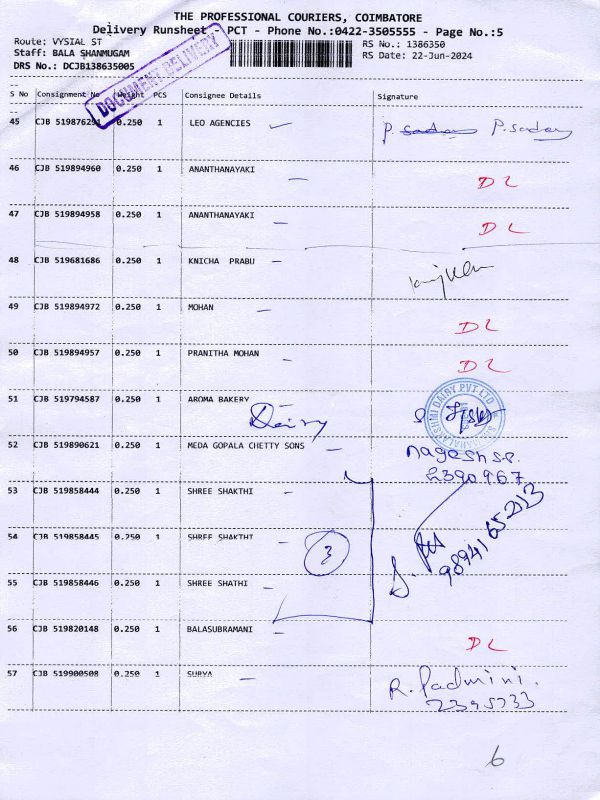 THE PROFESSIONAL COURIERS, COIMBATORE
Delivery Runsheet - PCT - Phone No.:0422-3505555 - Page No.:5
Route: VYSIAL ST RS No.: 1386350
Staff: BALA SHANMUGAM RS Date: 22-Jun-2024
DRS No.: DCJB138635005
DOCUMENT DELIVERY
S No Consignment No Weight PCS Consignee Details Signature
45 CJB 519876291 0.250 1 LEO AGENCIES P. P. Saday
46 CJB 519894960 0.250 1 ANANTHANAYAKI DL
47 CJB 519894958 0.250 1 ANANTHANAYAKI DL
48 CJB 519681686 0.250 1 KNICHA PRABU
49 CJB 519894972 0.250 1 MOHAN DL
50 CJB 519894957 0.250 1 PRANITHA MOHAN DL
51 CJB 519794587 0.250 1 AROMA BAKERY
Dairy
DAIRY PVT. LTD
52 CJB 519890621 0.250 1 MEDA GOPALA CHETTY SONS nagesh s.p.
2390967
53 CJB 519858444 0.250 1 SHREE SHAKTHI
54 CJB 519858445 0.250 1 SHREE SHAKTHI 3
55 CJB 519858446 0.250 1 SHREE SHATHI
56 CJB 519820148 0.250 1 BALASUBRAMANI DL
57 CJB 519900508 0.250 1 SURYA R. Padmini.
2395233
6